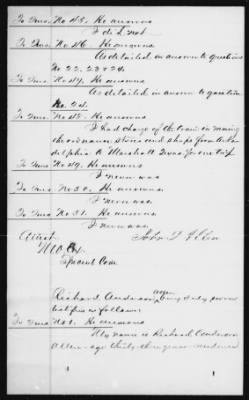 To Ques. No. 45. He answers
I do not
To Ques. No. 46. He answers
As detailed in answer to questions
No. 22, 23 & 24.
To Ques. No. 47. He answers
As detailed in answer to question
No. 24.
To Ques. No. 48. He answers
I had charge of the train in moving
the ordnance stores and shops from Arka
delphia to Marshall Texas for one trip
To Ques. No. 49. He answers
I never was
To Ques. No. 50. He answers
I never was
To Ques. No. 51. He answers
I never was
Attest John Allen
Special Com
Richard Anderson Allen being duly sworn
testifies as follows:
To Ques. No. 1. He answers
My name is Richard Anderson
Allen age thirty three years